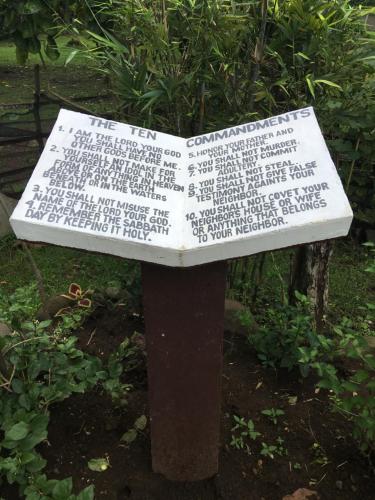 THE TEN
1. I AM THE LORD YOUR GOD
YOU SHALL HAVE NO
OTHER GODS BEFORE ME.
2. YOU SHALL NOT MAKE FOR
YOURSELF AN IDOL IN THE
FORM OF ANYTHING IN HEAVEN
ABOVE OR ON THE EARTH
BENEATH OR IN THE WATERS
BELOW.
3. YOU SHALL NOT MISUSE THE
NAME OF THE LORD YOUR GOD
4. REMEMBER THE SABBATH
DAY BY KEEPING IT HOLY.
COMMANDMENTS
5. HONOR YOUR FATHER AND
YOUR MOTHER.
6. YOU SHALL NOT MURDER.
7. YOU SHALL NOT COMMIT
ADULTERY.
8. YOU SHALL NOT STEAL.
9. YOU SHALL NOT GIVE FALSE
TESTIMONY AGAINTS YOUR
NEIGHBOR.
10. YOU SHALL NOT COVET YOUR
NEIGHBORS HOUSE OR WIFE
OR ANYTHING THAT BELONGS
TO YOUR NEIGHBOR.